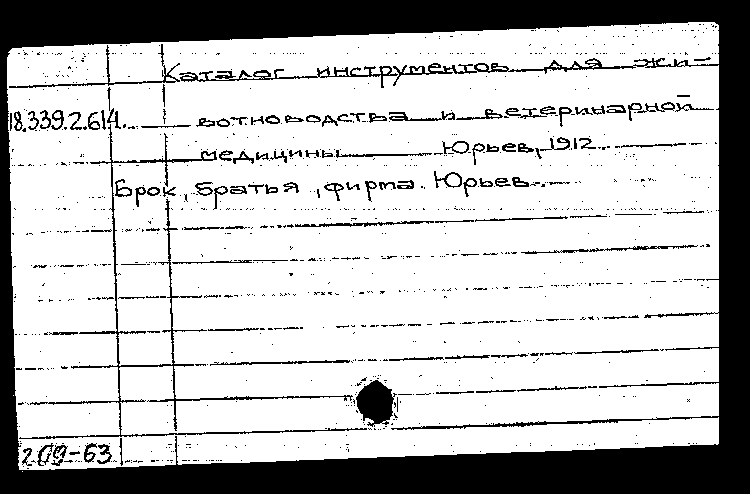 Каталог инструментов для жи-
18.339.2.614. вотноводства и ветеринарной
медицины Юрьев, 1912.
Брок, братья, фирма. Юрьев.
209-63